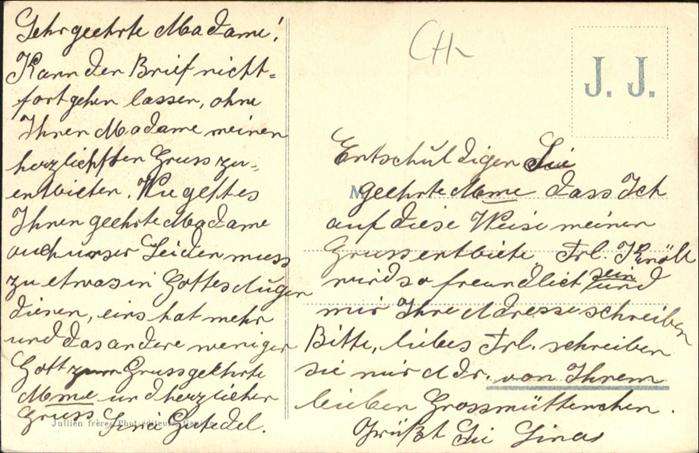 Sehr geehrte Madame!
Kann den Brief nicht-
fortgehen lassen, ohne
Ihnen Madame meinen
herzlichsten Gruss zu-
entbieten. Wie geht es
Ihnen geehrte Madame
auch unser Leiden muss
zu etwas in Gottes Augen
dienen, eins hat mehr
und das andere weniger
Gott zum Gruss geehrte
Mme und herzlicher
Gruss Lina
CH-
J. J.
Entschuldigen Sie
geehrte Mme dass Ich
auf diese Weise meinen
Gruss entbiete, Frl. Knöll
wird so freundlich sein und
mir Ihre Adresse schreiben
Bitte, liebes Frl. schreiben
sie mir Adr. von Ihrem
lieben Grossmütterchen.
Grüßt Sie Lina
Jullien frères, Phot.-éditeurs